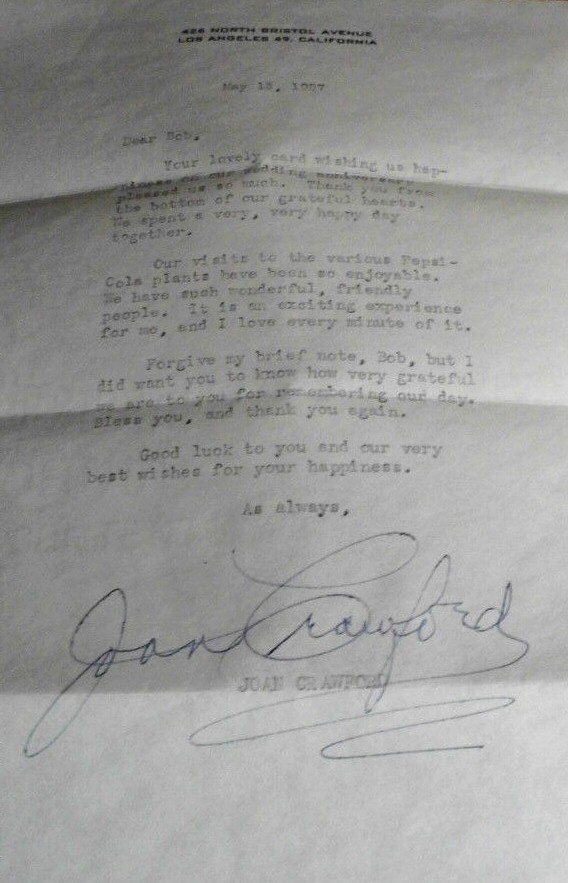 426 NORTH BRISTOL AVENUE
LOS ANGELES 49, CALIFORNIA
May 15, 1957
Dear Bob,
Your lovely card wishing us hap-
piness on our wedding anniversary
pleased us so much. Thank you from
the bottom of our grateful hearts.
We spent a very, very happy day
together.
Our visits to the various Pepsi-
Cola plants have been so enjoyable.
We have such wonderful, friendly
people. It is an exciting experience
for me, and I love every minute of it.
Forgive my brief note, Bob, but I
did want you to know how very grateful
we are to you for remembering our day.
Bless you, and thank you again.
Good luck to you and our very
best wishes for your happiness.
As always,
Joan Crawford
JOAN CRAWFORD